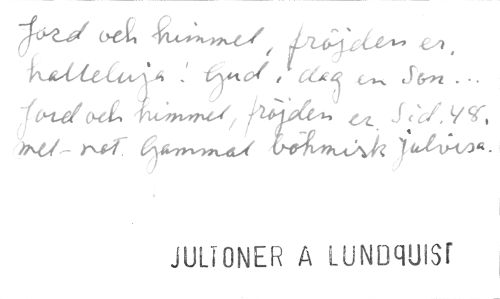 Jord och himmel, fröjden er,
halleluja! Gud i dag en Son...
Jord och himmel, fröjden er. Sid. 48.
mel-not. Gammal böhmisk julvisa.
JULTONER A LUNDQUIST